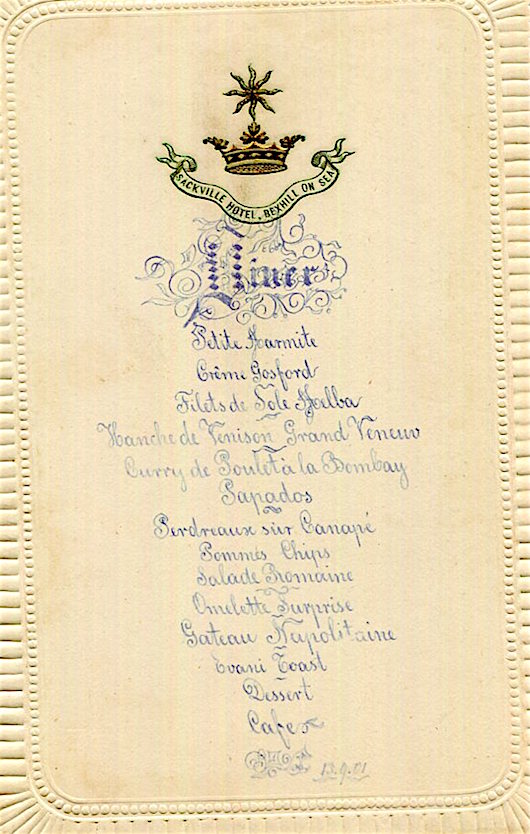 SACKVILLE HOTEL, BEXHILL ON SEA
Diner
Petite Marmite
Crême Gosford
Filets de Sole Melba
Hanche de Venison Grand Veneuv
Curry de Poulet à la Bombay
Papados
Perdreaux sur Canapé
Pommes Chips
Salade Romaine
Omelette Surprise
Gateau Napolitaine
Toast
Dessert
Cafe
13.9.01